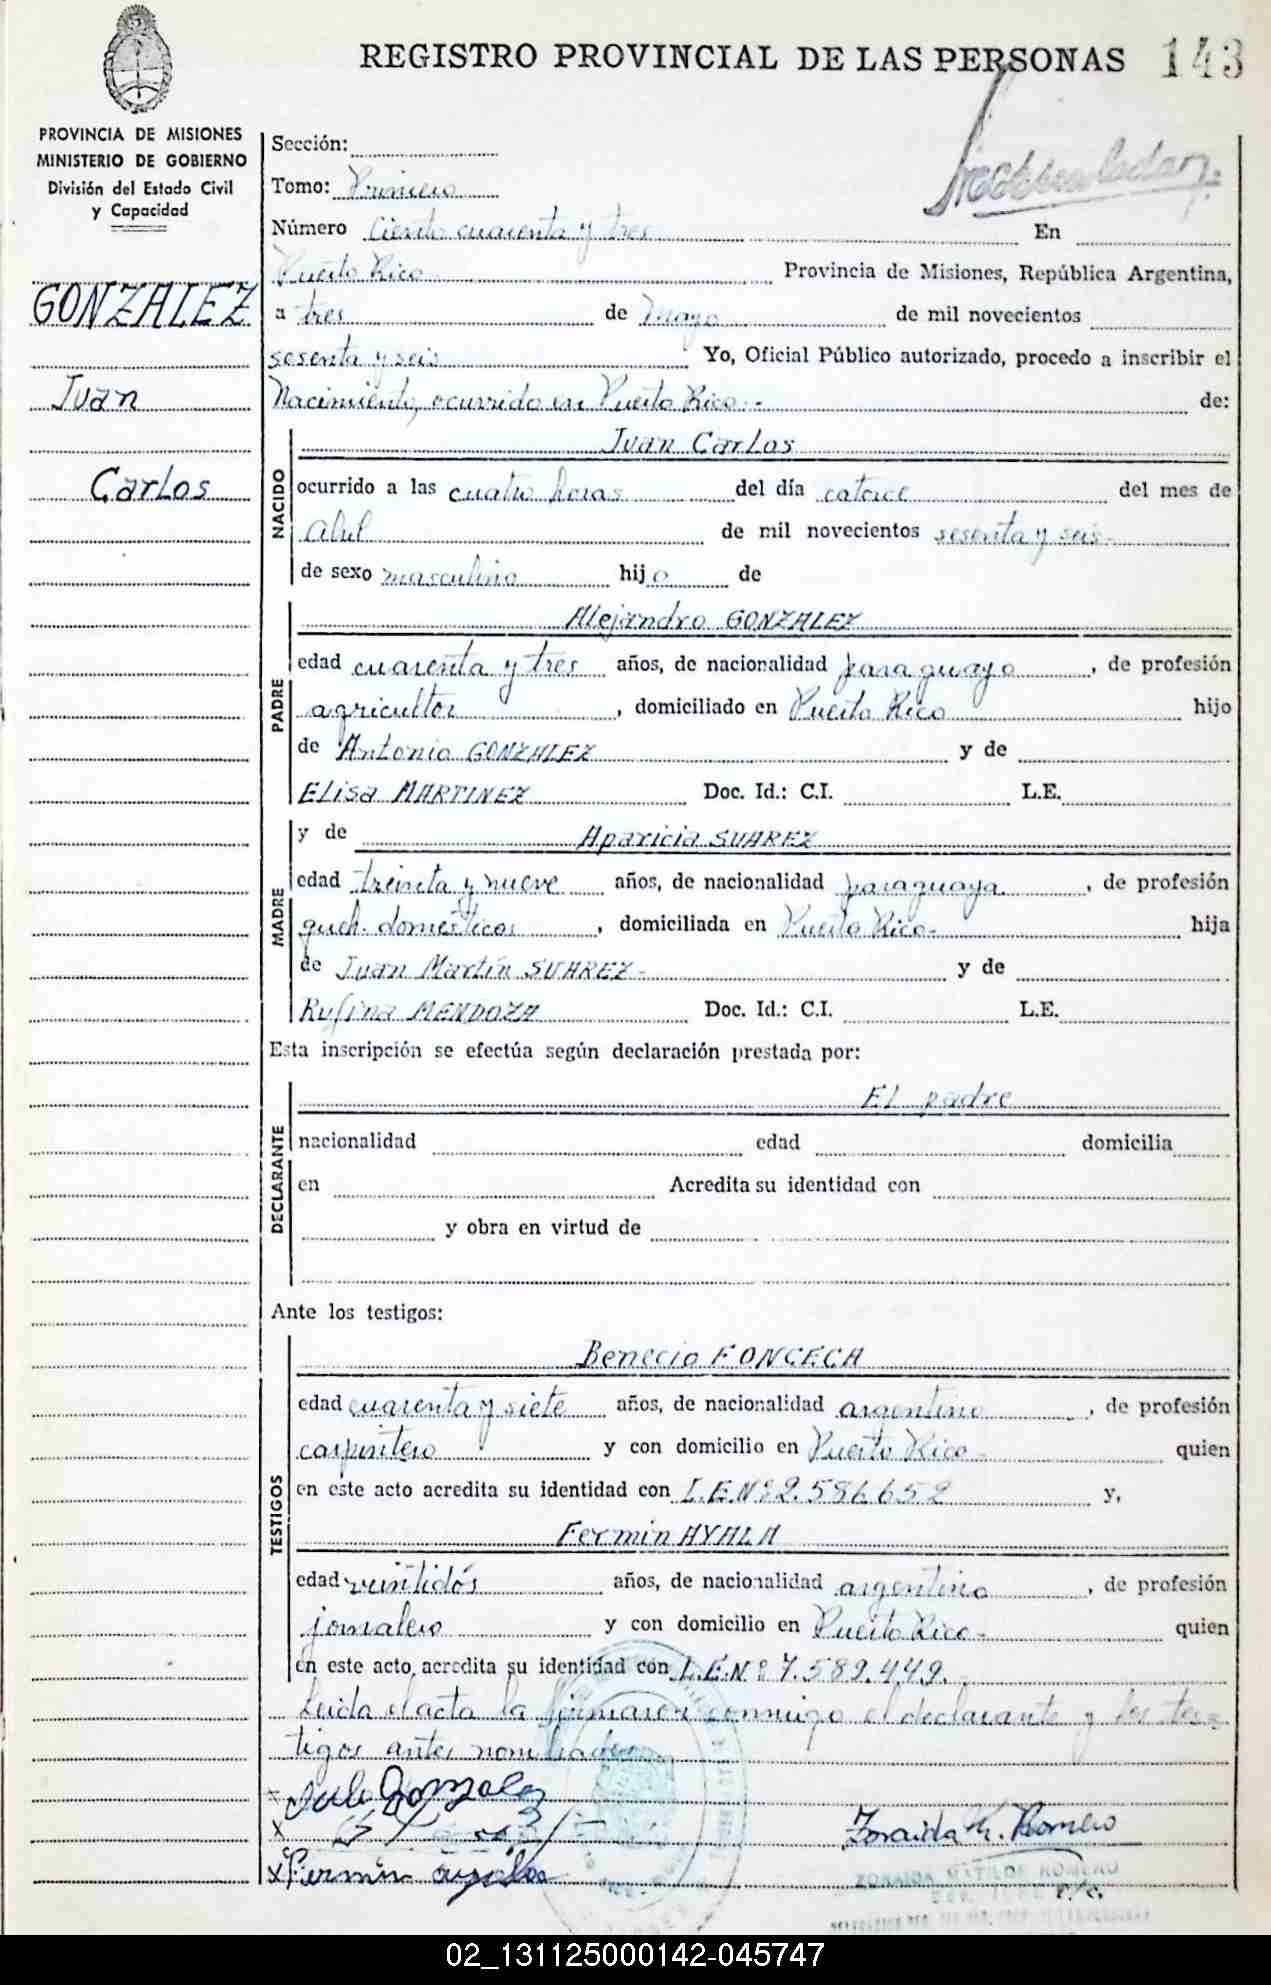 REGISTRO PROVINCIAL DE LAS PERSONAS 143
PROVINCIA DE MISIONES
MINISTERIO DE GOBIERNO
División del Estado Civil
y Capacidad
GONZALEZ
Juan
Carlos
Sección:
Tomo: Primero
Número Ciento cuarenta y tres En
Puerto Rico Provincia de Misiones, República Argentina,
a tres de Mayo de mil novecientos
sesenta y seis Yo, Oficial Público autorizado, procedo a inscribir el
Nacimiento, ocurrido en Puerto Rico.- de:
NACIDO
Juan Carlos
ocurrido a las cuatro horas del día catorce del mes de
Abril de mil novecientos sesenta y seis-
de sexo masculino hijo de
PADRE
Alejandro GONZALEZ
edad cuarenta y tres años, de nacionalidad paraguayo, de profesión
agricultor, domiciliado en Puerto Rico hijo
de Antonio GONZALEZ y de
Elisa MARTINEZ Doc. Id.: C.I. L.E.
MADRE
y de Aparicia SUAREZ
edad treinta y nueve años, de nacionalidad paraguaya, de profesión
queh. domésticos, domiciliada en Puerto Rico- hija
de Juan Martín SUAREZ- y de
Rufina MENDOZA Doc. Id.: C.I. L.E.
Esta inscripción se efectúa según declaración prestada por:
DECLARANTE
El padre
nacionalidad edad domicilia
en Acredita su identidad con
y obra en virtud de
Ante los testigos:
TESTIGOS
Benecio FONCECA
edad cuarenta y siete años, de nacionalidad argentino, de profesión
carpintero y con domicilio en Puerto Rico- quien
en este acto acredita su identidad con L.E.Nº 2.586.652 y,
Fermin AYALA
edad veintidós años, de nacionalidad argentino, de profesión
jornalero y con domicilio en Puerto Rico- quien
en este acto, acredita su identidad con L.E.Nº 7.589.449.
Leida el acta la firmaron conmigo el declarante y los tes=
tigos antes nombrados
Gonzalez
Zoraida M. Romero
x Fermin Ayala
ZORAIDA MATILDE ROMERO
02_131125000142-045747